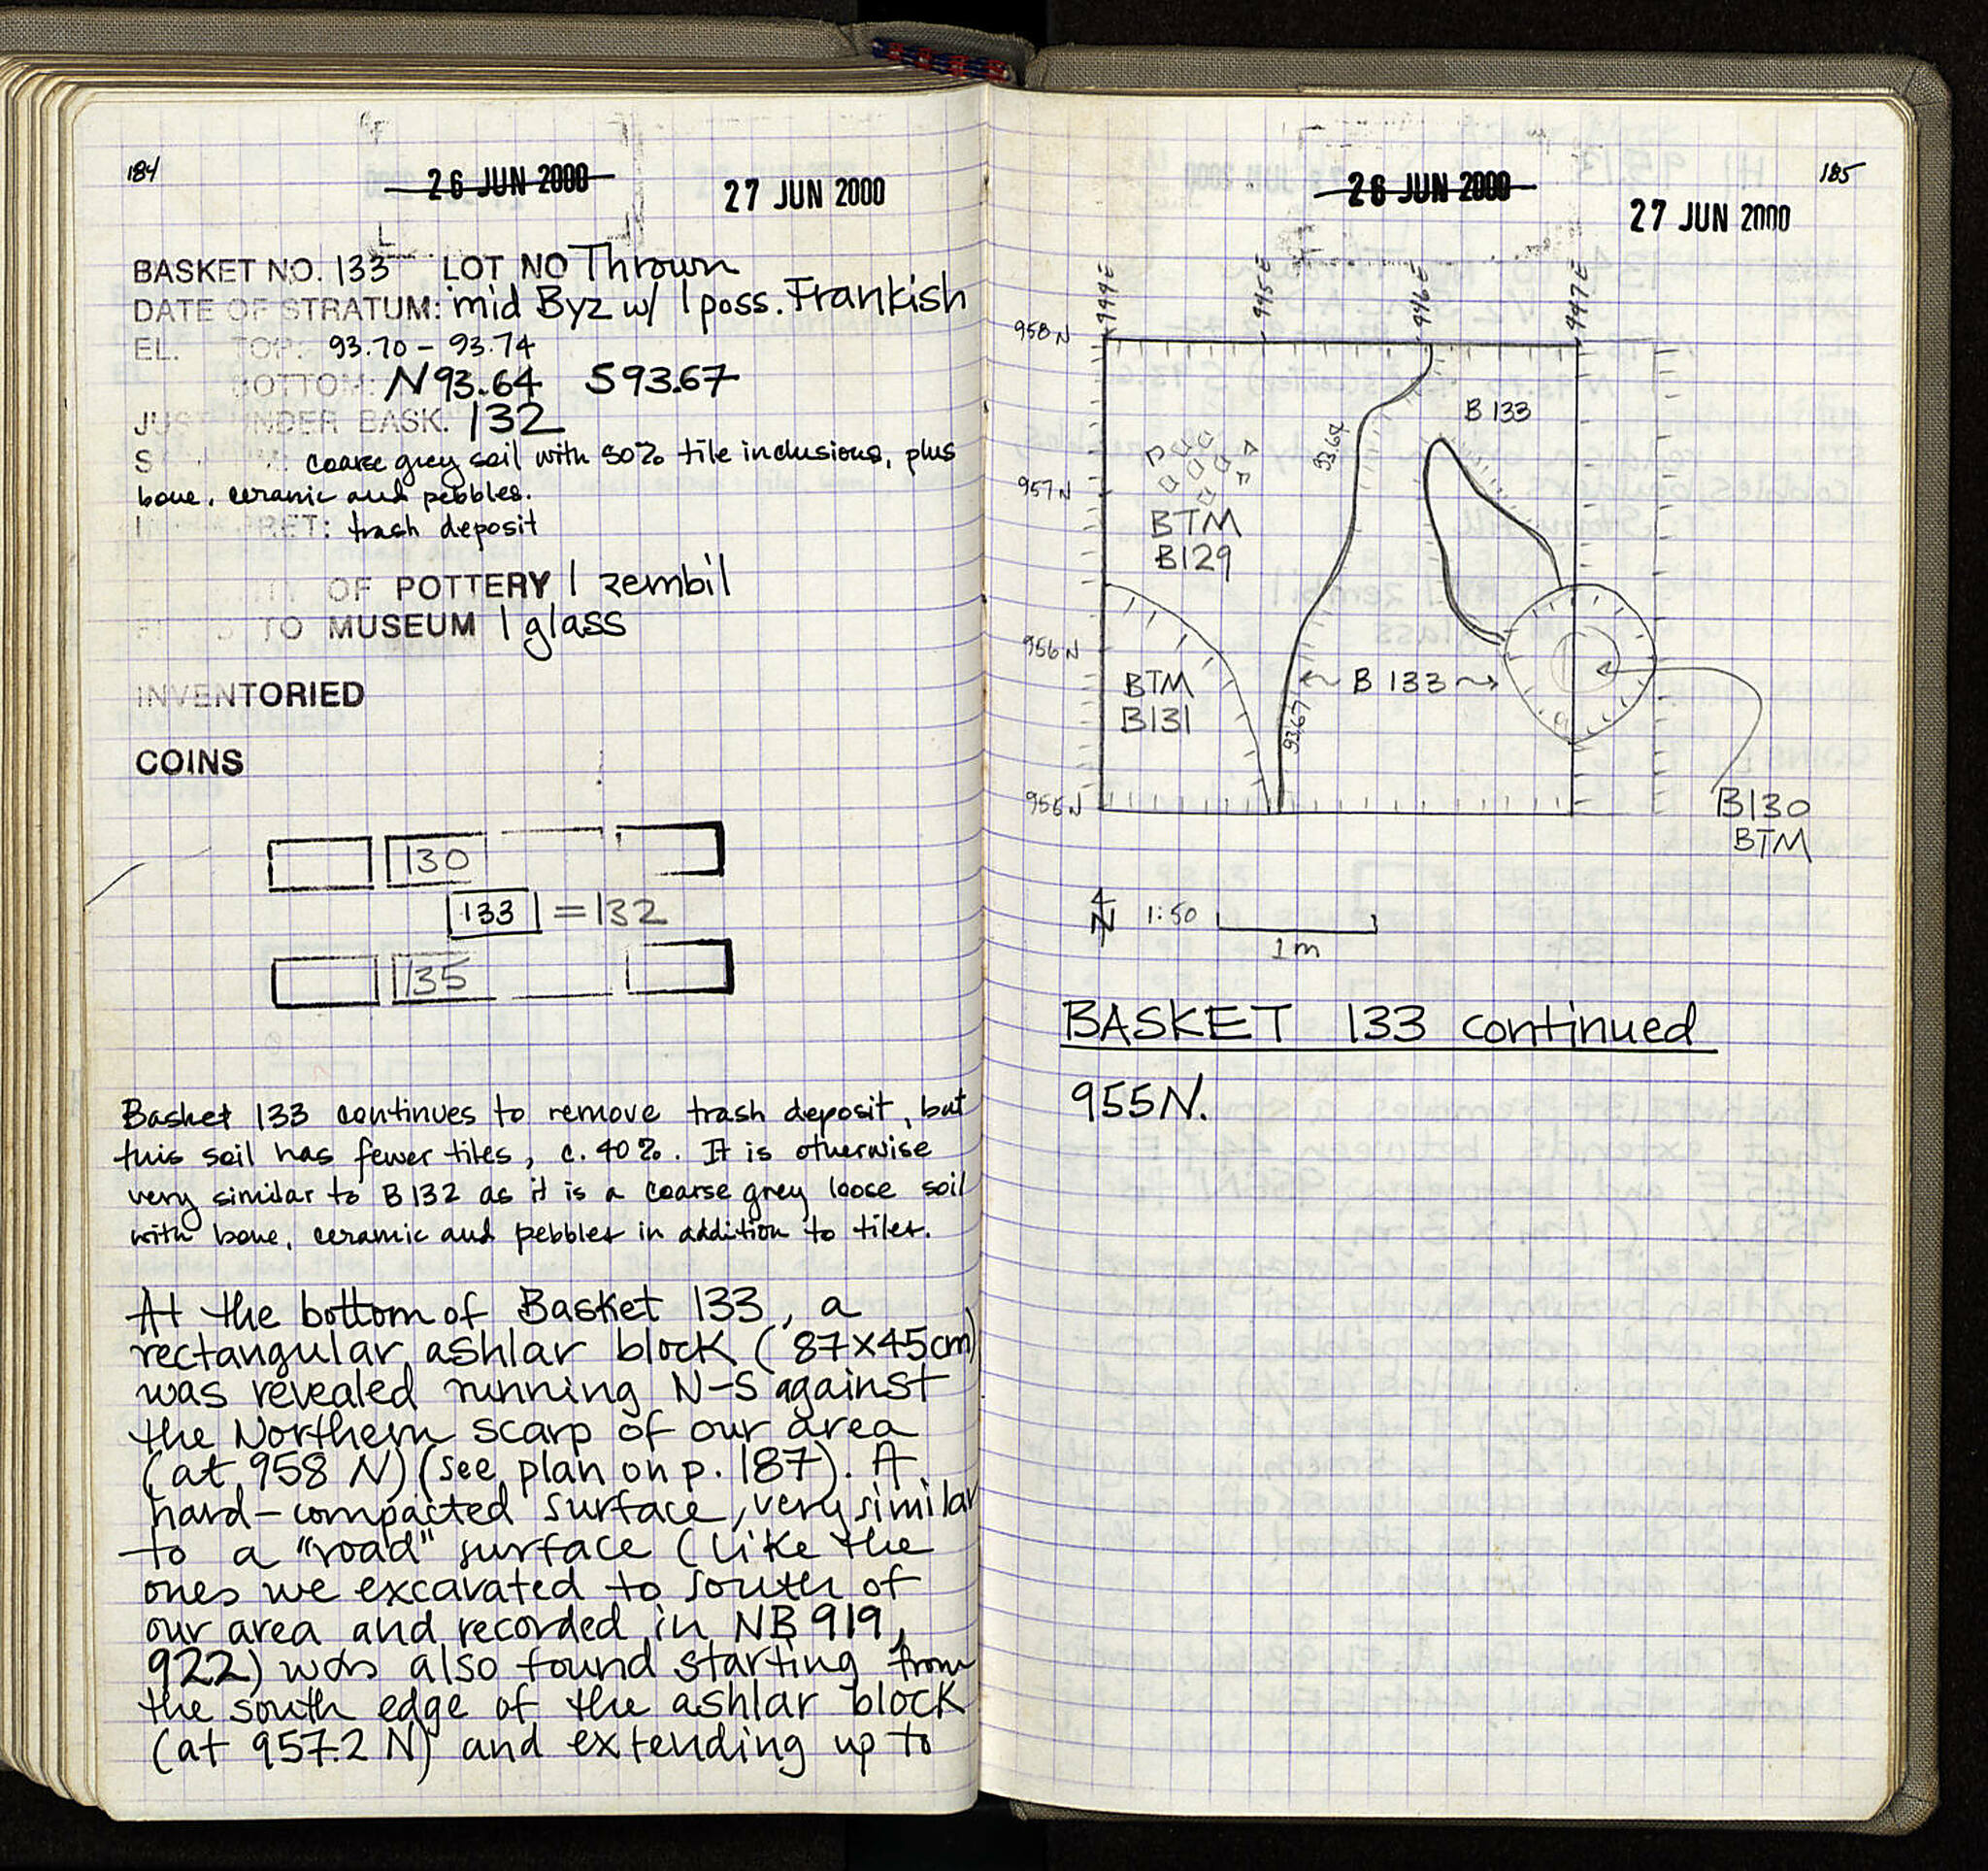 184
26 JUN 2000 27 JUN 2000
BASKET NO. 133 LOT NO Thrown
DATE OF STRATUM: mid Byz w/ 1 poss. Frankish
EL. TOP: 93.70 - 93.74
BOTTOM: N 93.64 S 93.67
JUST UNDER BASK. 132
S coarse grey soil with 50% tile inclusions, plus
bone, ceramic and pebbles.
PRET: trash deposit
OF POTTERY 1 zembil
TO MUSEUM 1 glass
INVENTORIED
COINS
130
133 = 132
135
Basket 133 continues to remove trash deposit, but
this soil has fewer tiles, c. 40%. It is otherwise
very similar to B132 as it is a coarse grey loose soil
with bone, ceramic and pebbles in addition to tiles.
At the bottom of Basket 133, a
rectangular ashlar block (87x45cm)
was revealed running N-S against
the Northern scarp of our area
(at 958 N) (see plan on p. 187). A
hard-compacted surface, very similar
to a "road" surface (like the
ones we excavated to south of
our area and recorded in NB 919,
922) was also found starting from
the south edge of the ashlar block
(at 957.2 N) and extending up to
185
26 JUN 2000
27 JUN 2000
944E 945E 946E 947E
958N
B 133
93.64
957N
BTM
B129
956N
BTM
B131
B 133
93.67
955N
B130
BTM
N 1:50
1m
BASKET 133 continued
955N.